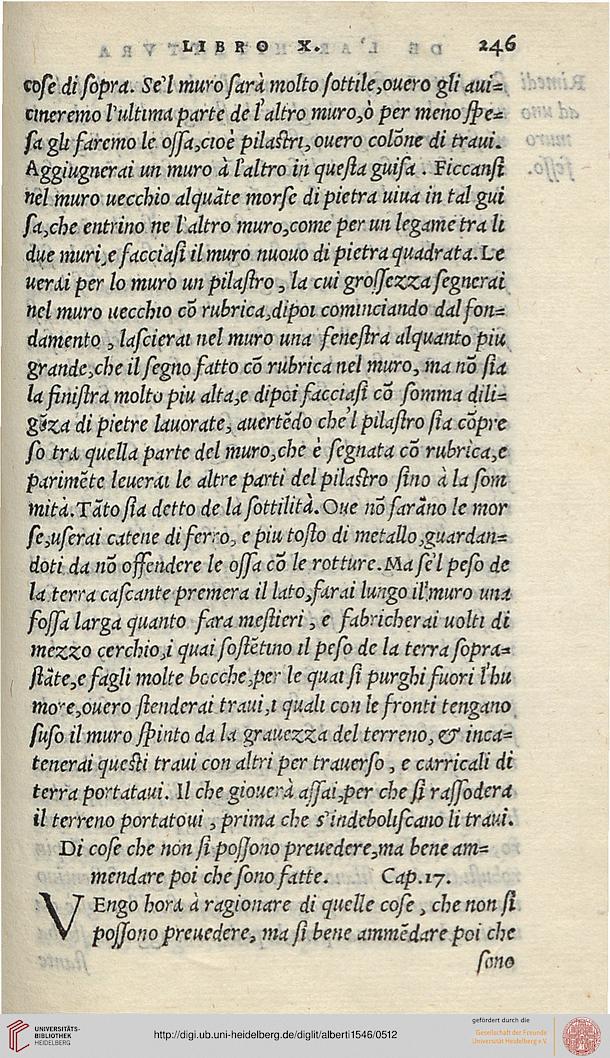 LIBRO X. 246
cose di sopra. Se'l muro sarà molto sottile, ouero gli aui=
cineremo l'ultima parte de l'altro muro, ò per meno spe=
sa gli faremo le ossa, cioè pilastri, ouero colõne di traui.
Aggiugnerai un muro à l'altro in questa guisa . Ficcansi
nel muro uecchio alquãte morse di pietra uiua in tal gui
sa, che entrino ne l'altro muro, come per un legame tra li
due muri, e facciasi il muro nuouo di pietra quadrata. Le
uerai per lo muro un pilastro , la cui grossezza segnerai
nel muro uecchio cõ rubrica, dipoi cominciando dal fon=
damento , lascierai nel muro una fenestra alquanto piu
grande, che il segno fatto cõ rubrica nel muro, ma nõ sia
la finistra molto piu alta, e dipoi facciasi cõ somma dili=
gẽza di pietre lauorate, auertẽdo che'l pilastro sia cõpre
so tra quella parte del muro, che è segnata cõ rubrica, e
parimẽte leuerai le altre parti del pilastro sino à la som
mità. Tãto sia detto de la sottilità. Oue nõ farãno le mor
se, userai catene di ferro, e piu tosto di metallo, guardan=
doti da nõ offendere le ossa cõ le rotture. Ma se'l peso de
la terra cascante premera il lato, farai lungo il muro una
fossa larga quanto fara mestieri , e fabricherai uolti di
mezzo cerchio, i quai sostẽtino il peso de la terra sopra=
stãte, e fagli molte bocche, per le quai si purghi fuori l'hu
more, ouero stenderai traui, i quali con le fronti tengano
suso il muro spinto da la grauezza del terreno, & inca=
tenerai questi traui con altri per trauerso , e carricali di
terra portataui. Il che giouerà assai, per che si rassodera
il terreno portatoui , prima che s'indeboliscano li traui.
Di cose che non si possono preuedere, ma bene am=
mendare poi che sono fatte. Cap. 17.
VEngo hora à ragionare di quelle cose , che non si
possono preuedere, ma si bene ammẽdare poi che
sono
UNIVERSITÄTS-
BIBLIOTHEK
HEIDELBERG
http://digi.ub.uni-heidelberg.de/diglit/alberti1546/0512
gefördert durch die
Gesellschaft der Freunde
Universität Heidelberg e.V.